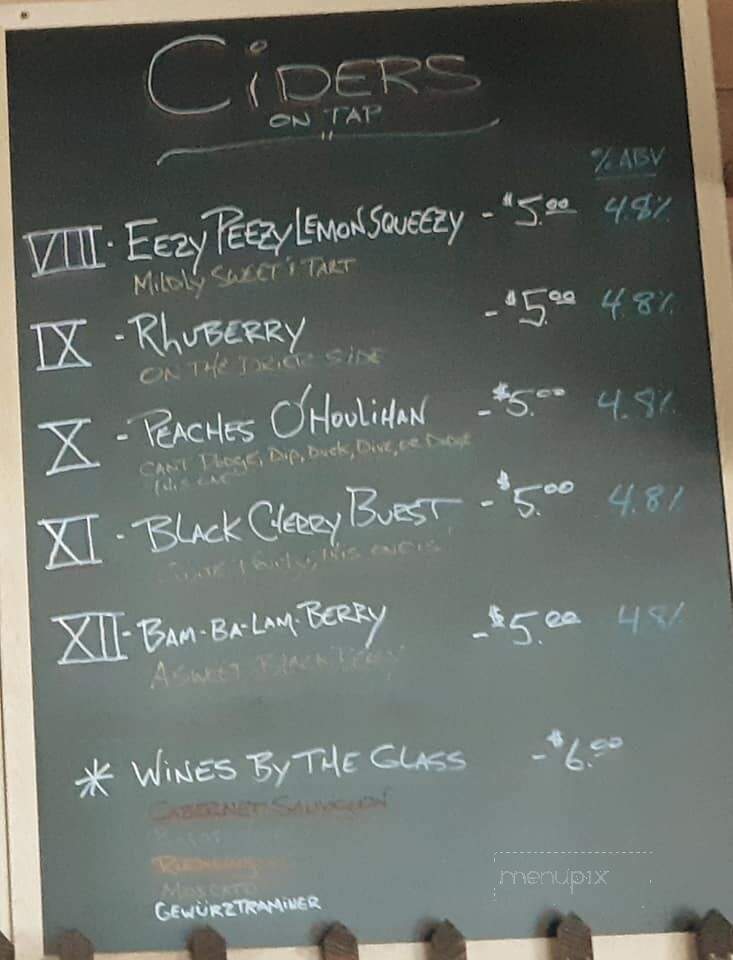 CiDERS
ON TAP
% ABV
VIII · EEZY PEEZY LEMON SQUEEZY - $5.00 4.8%
MILDLY SWEET & TART
IX - RHUBERRY - $5.00 4.8%
ON THE DRIER SIDE
X - PEACHES O'HOULIHAN - $5.00 4.8%
CAN'T Dodge, Dip, Duck, Dive, or Dodge
this one
XI - BLACK CHERRY BURST - $5.00 4.8%
this one is
XII - BAM-BA-LAM-BERRY - $5.00 4.8%
A SWEET BLACK
* WINES BY THE GLASS - $6.00
CABERNET SAUVIGNON
RIESLING
MOSCATO
GEWÜRZTRAMINER
menupix